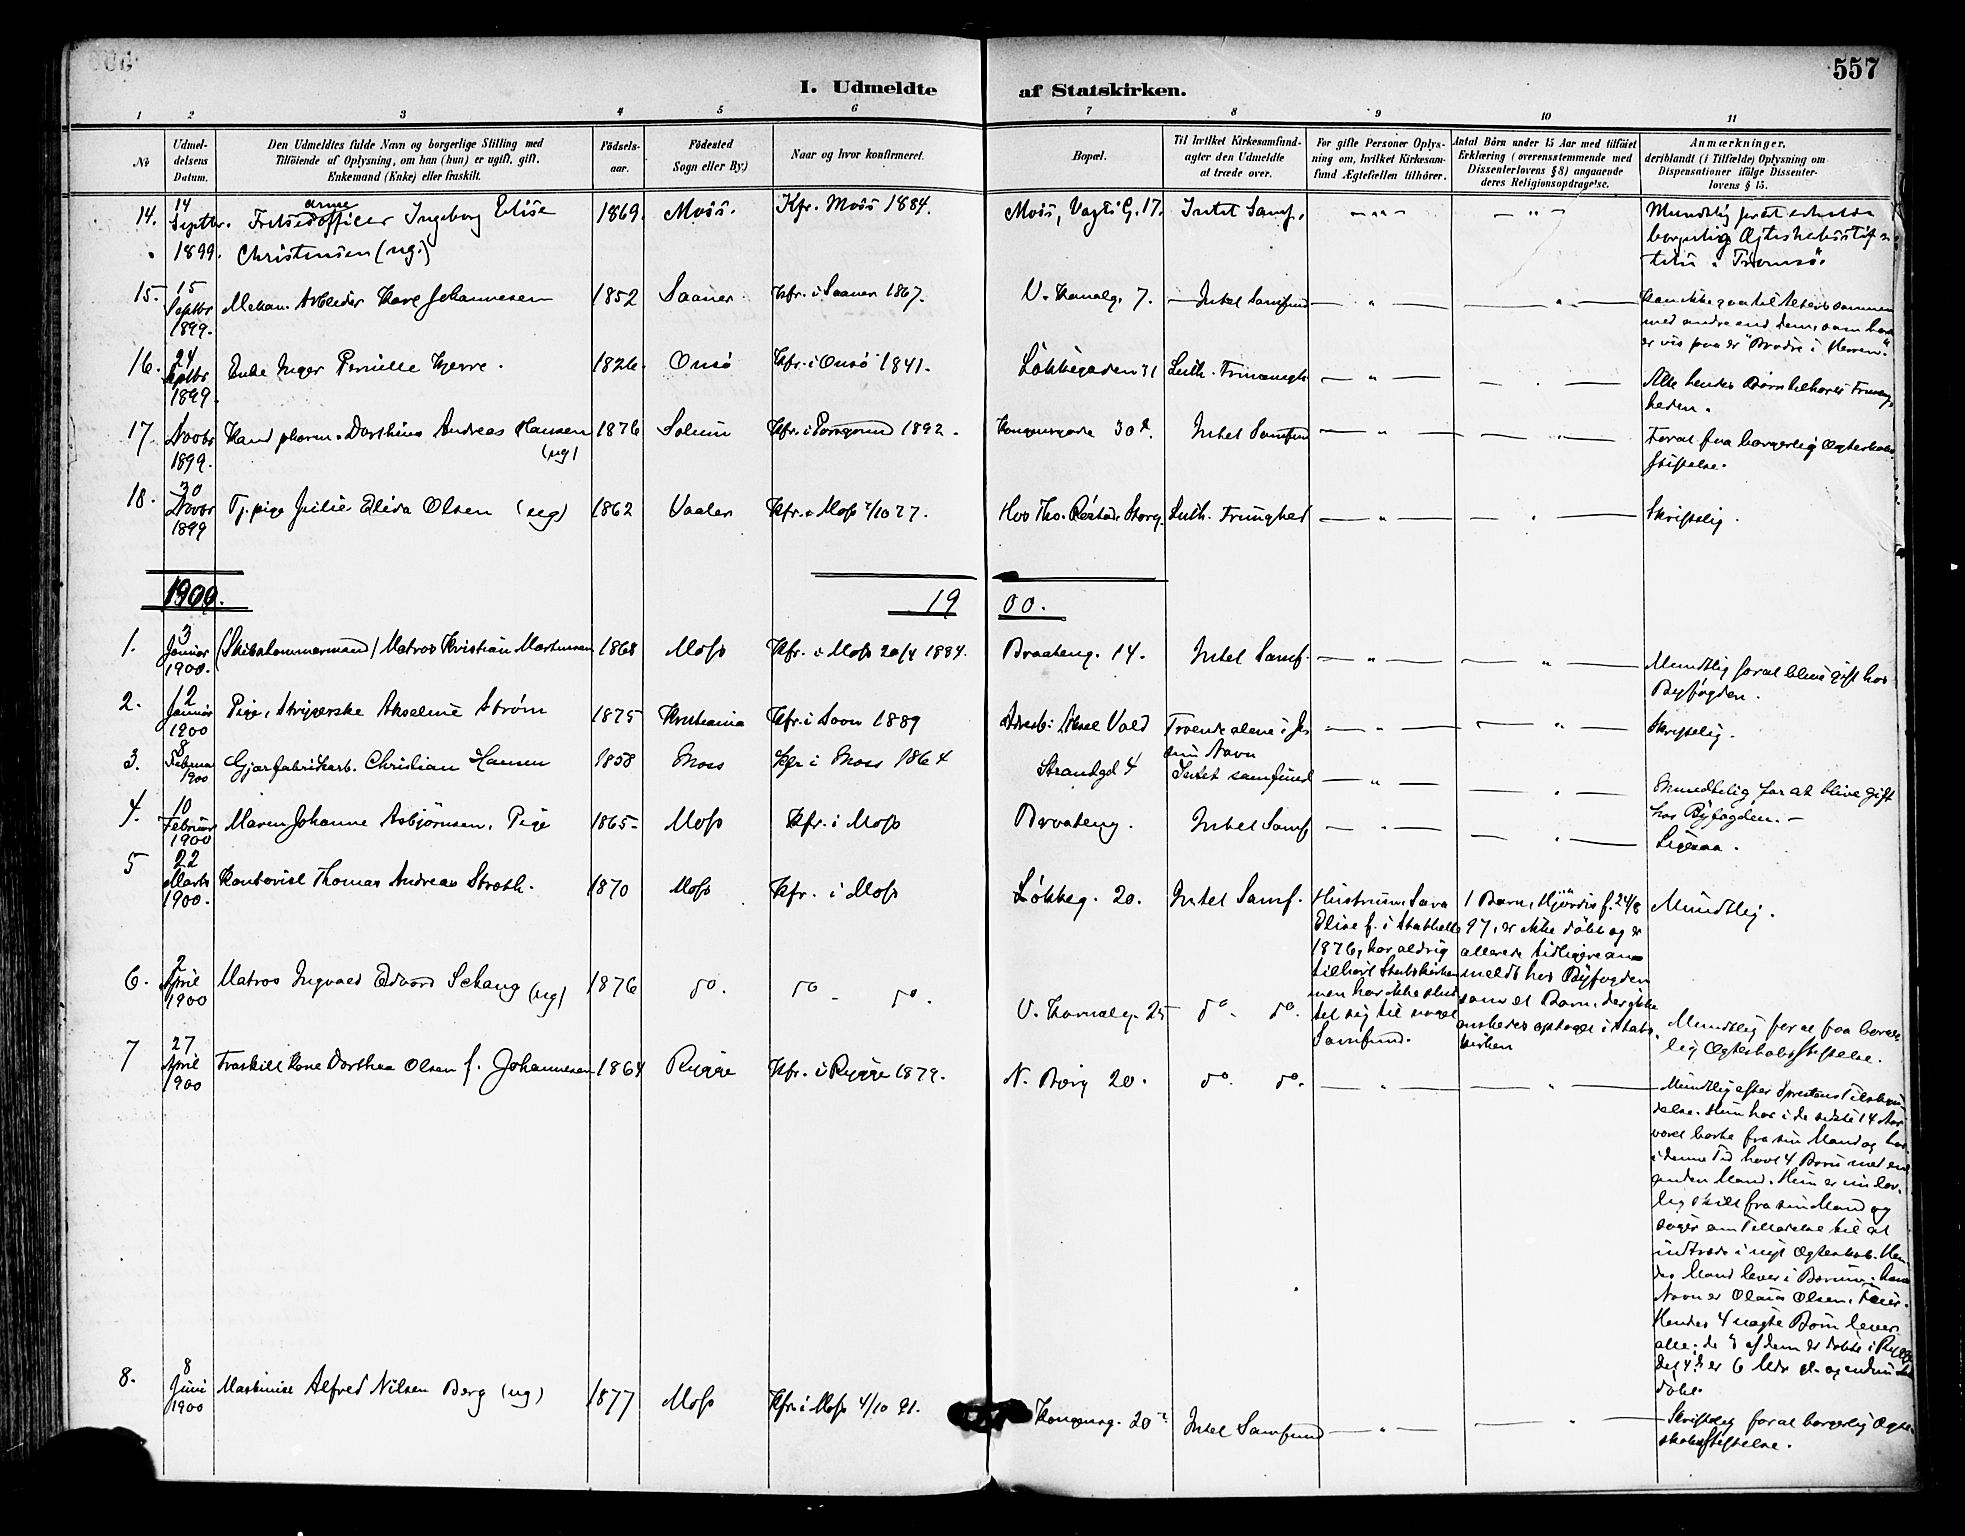 557
I. Udmeldte af Statskirken.
1 2 3 4 5 6 7 8 9 10 11
No
Udmel-
delsens
Datum.
Den Udmeldtes fulde Navn og borgerlige Stilling med
Tilföiende af Oplysning, om han (hun) er ugift, gift,
Enkemand (Enke) eller fraskilt.
Födsels-
aar.
Födested
Sogn eller By.)
Naar og hvor konfirmeret.
Bopæl.
Til hvilket Kirkesamfund-
agter den Udmeldte
at træde over.
For gifte Personer Oplys-
ning om, hvilket Kirkesam-
fund Ægtefællen tilhörer.
Antal Börn under 15 Aar med tilföiet
Erklæring (overensstemmende med
Dissenterlovens § 8) angaaende
deres Religionsopdragelse.
Anmærkninger,
deriblandt (i Tilfælde) Oplysning om
Dispensationer ifölge Dissenter-
lovens § 15.
14. 14 Septbr. 1899. Frelsesarmeofficer Ingeborg Elise Christensen (ug.) 1869. Moss. Kfr. Moss 1884. Moss, Vogts G. 17. Intet Samf. — " —
Mundtlig for at erholde
borgerlig Ægteskabsstif-
telse i Tromsö.
15. 15 Septbr 1899. Mekan. Arbeider Karl Johannesen 1852 Saaner Kfr. i Saaner 1867. V. Kanalg. 7. Intet Samfund — " — — " —
kan ikke gaa til Alters sammen
med andre end dem, som han
er vis paa er "Brødre i Herren".
16. 24 Septbr 1899. Enke Inger Pernille Kjerre. 1826. Onsö Kfr. i Onsö 1841. Lökkegaden 31 Luth. Frimenigh — " —
Alle hendes Børn tilhører Frimenig-
heden.
17. Novbr 1899. Kand. pharm. Dorthius Andreas Hansen (ug) 1876 Solum Kfr. i Porsgrund 1892. Kongensgade 30 Intet Samfund — " — — " —
For at faa borgerlig Ægteskabs-
stiftelse.
18. 30 Novbr 1899 Tj. pige Julie Elisa Olsen (ug) 1862 Vaaler Kfr. i Moss /10 77. Hos Ths. Storg. Luth. Frimghed — " — — " — Skriftlig.
1900.
19 00.
1. 3 Januar 1900. (Skibstømmermand) Matros Kristian Martinsen 1868 Moss Kfr. i Moss 20/4 1884. Braateng. 14. Intet Samf. — " — — " —
Mundtlig for at blive gift hos
Byfogden.
2. 12 Januar 1900 Pige, Strygerske Akseline Strøm 1875 Kristiania Kfr. i 1889 Adresb: Aksel Vold Troende alene i Je-
su Navn — " — — " — Skriftlig.
3. 8 Februar 1900 Gjærfabrikarb. Christian Hansen 1858 Moss Kfr i Moss 1864 Strandgd 4 Intet samfund — " —
Mundtelig for at blive gift
hos Byfogden. —
4. 10 Februar 1900 Maren Johanne Asbjørnsen, Pige 1865- Moss Kfr. i Moss Braateng. Intet Samf — " — — " — Ligesaa.
5 22 Marts 1900. Kontorist Thomas Andreas Stroth. 1870 Moss Kfr. i Moss Lökkeg. 20. Intet Samf.
Hustruen, Sara
Elise f. i Stathelle
1876, har aldrig
tilhört Statskirken
men har ikke slut-
tet sig til noget
Samfund.
1 Barn, Hjördis f. 24/8
97, er ikke döbt og er
allerede tidligere an-
meldt hos Byfogden
som et Barn, der ikke
önskedes optaget i Stats-
kirken
Mundtlig.
6. 2 April 1900 Matros Ingvald Edvard Schang (ug) 1876 do. do - do. V. Kanalg. 25 do. do.
Mundtlig for at faa borger-
lig Ægteskabsstiftelse.
7 27 April 1900 Fraskilt Kone Dorthea Olsen f. Johannesen 1864 Rygge Kfr. i Rygge 1879. N. Borg 20. do. do. — " — — " —
Mundtlig efter Prestens Tilskyn-
delse. Hun har i de sidste 14 Aar
været borte fra sin Mand og har
i denne Tid havt 4 Børn med en
anden Mand. Hun er nu lov-
lig skilt fra sin Mand og
søger om Tilladelse til at
indtræde i nyt Ægteskab. Hen-
des Mand lever i Bærum, hans
Navn er Olaus Olsen,
Hendes 4 uægte Børn lever
alle; de 3 af dem er döbte i Rygge
Det 4de er 6 Mdr gl. og endnu ikke
döbt.
8. 8 Juni 1900 Maskinist Alfred Nilsen Berg (ug) 1877 Moss Kfr. i Moss 4/10 91. Kongensg. 20 Intet Samfund — " — — " —
Skriftlig for at borgerlig Ægte-
skabsstiftelse.